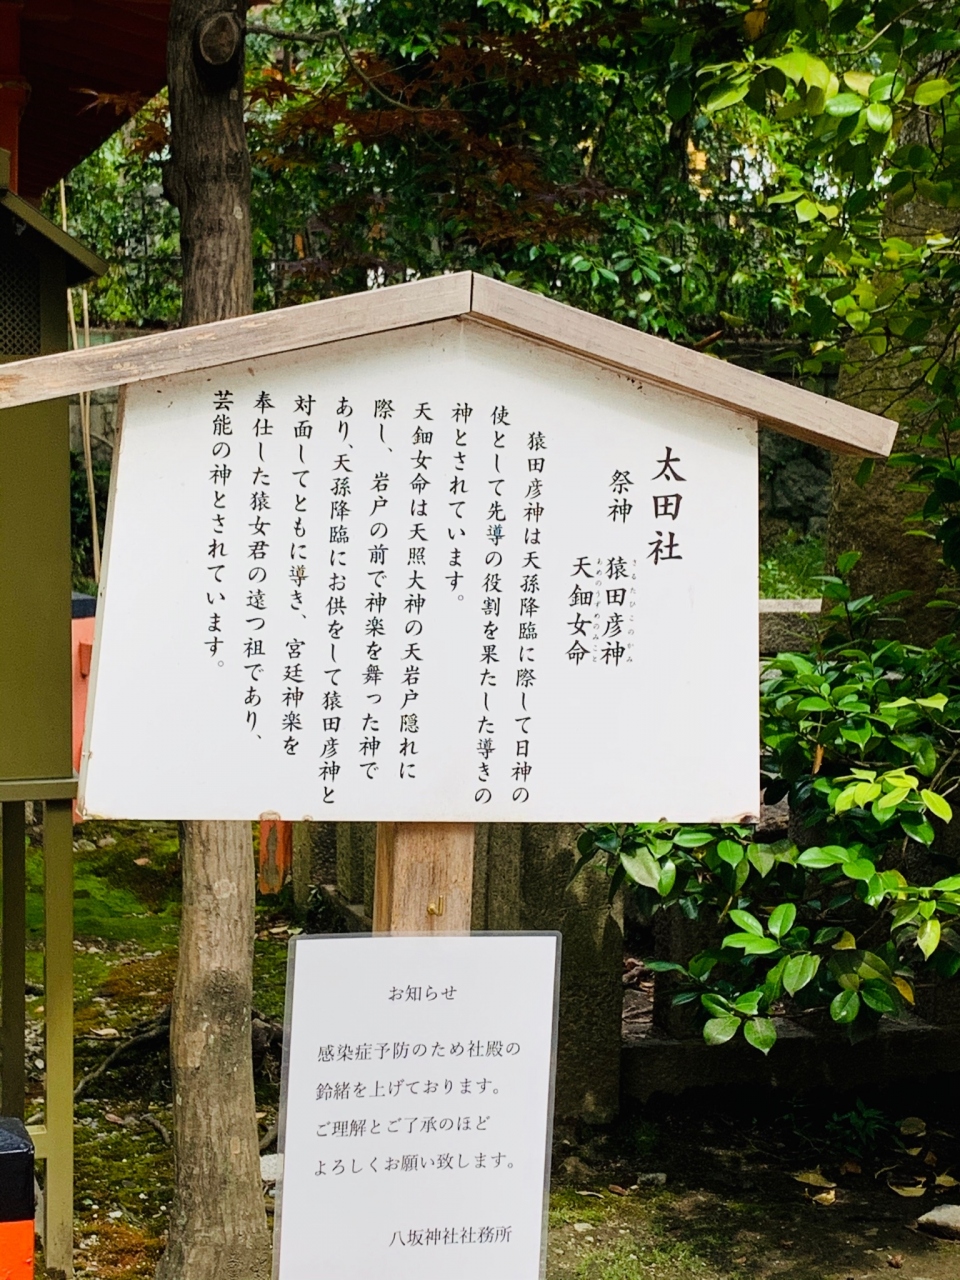 太田社
祭神
猿田彦神
さるたひこのかみ
天鈿女命
あめのうずめのみこと
猿田彦神は天孫降臨に際して日神の
使として先導の役割を果たした導きの
神とされています。
天鈿女命は天照大神の天岩戸隠れに
際し、岩戸の前で神楽を舞った神で
あり、天孫降臨にお供をして猿田彦神と
対面してともに導き、宮廷神楽を
奉仕した猿女君の遠つ祖であり、
芸能の神とされています。
お知らせ
感染症予防のため社殿の
鈴緒を上げております。
ご理解とご了承のほど
よろしくお願い致します。
八坂神社社務所